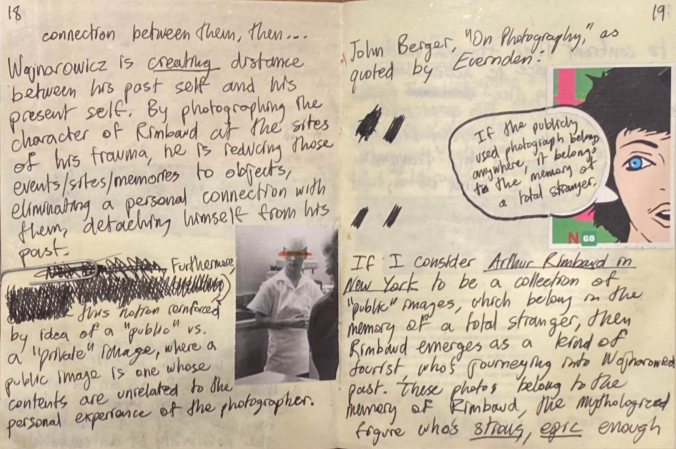 18
connection between them, then...
Wojnarowicz is creating distance
between his past self and his
present self. By photographing the
character of Rimbaud at the sites
of his trauma, he is reducing those
events/sites/memories to objects,
eliminating a personal connection with
them, detaching himself from his
past.
Furthermore,
this notion reinforced
by idea of a "public" vs.
a "private" image, where a
public image is one whose
contents are unrelated to the
personal experience of the photographer.
19
John Berger, "On Photography," as
quoted by Evernden:
If the publicly
used photograph belongs
anywhere, it belongs
to the memory of
a total stranger.
N GO
If I consider Arthur Rimbaud in
New York to be a collection of
"public" images, which belong in the
memory of a total stranger, then
Rimbaud emerges as a kind of
tourist who's journeying into Wojnarowicz
past. These photos belong to the
memory of Rimbaud, the mythologized
figure who's strong, epic enough